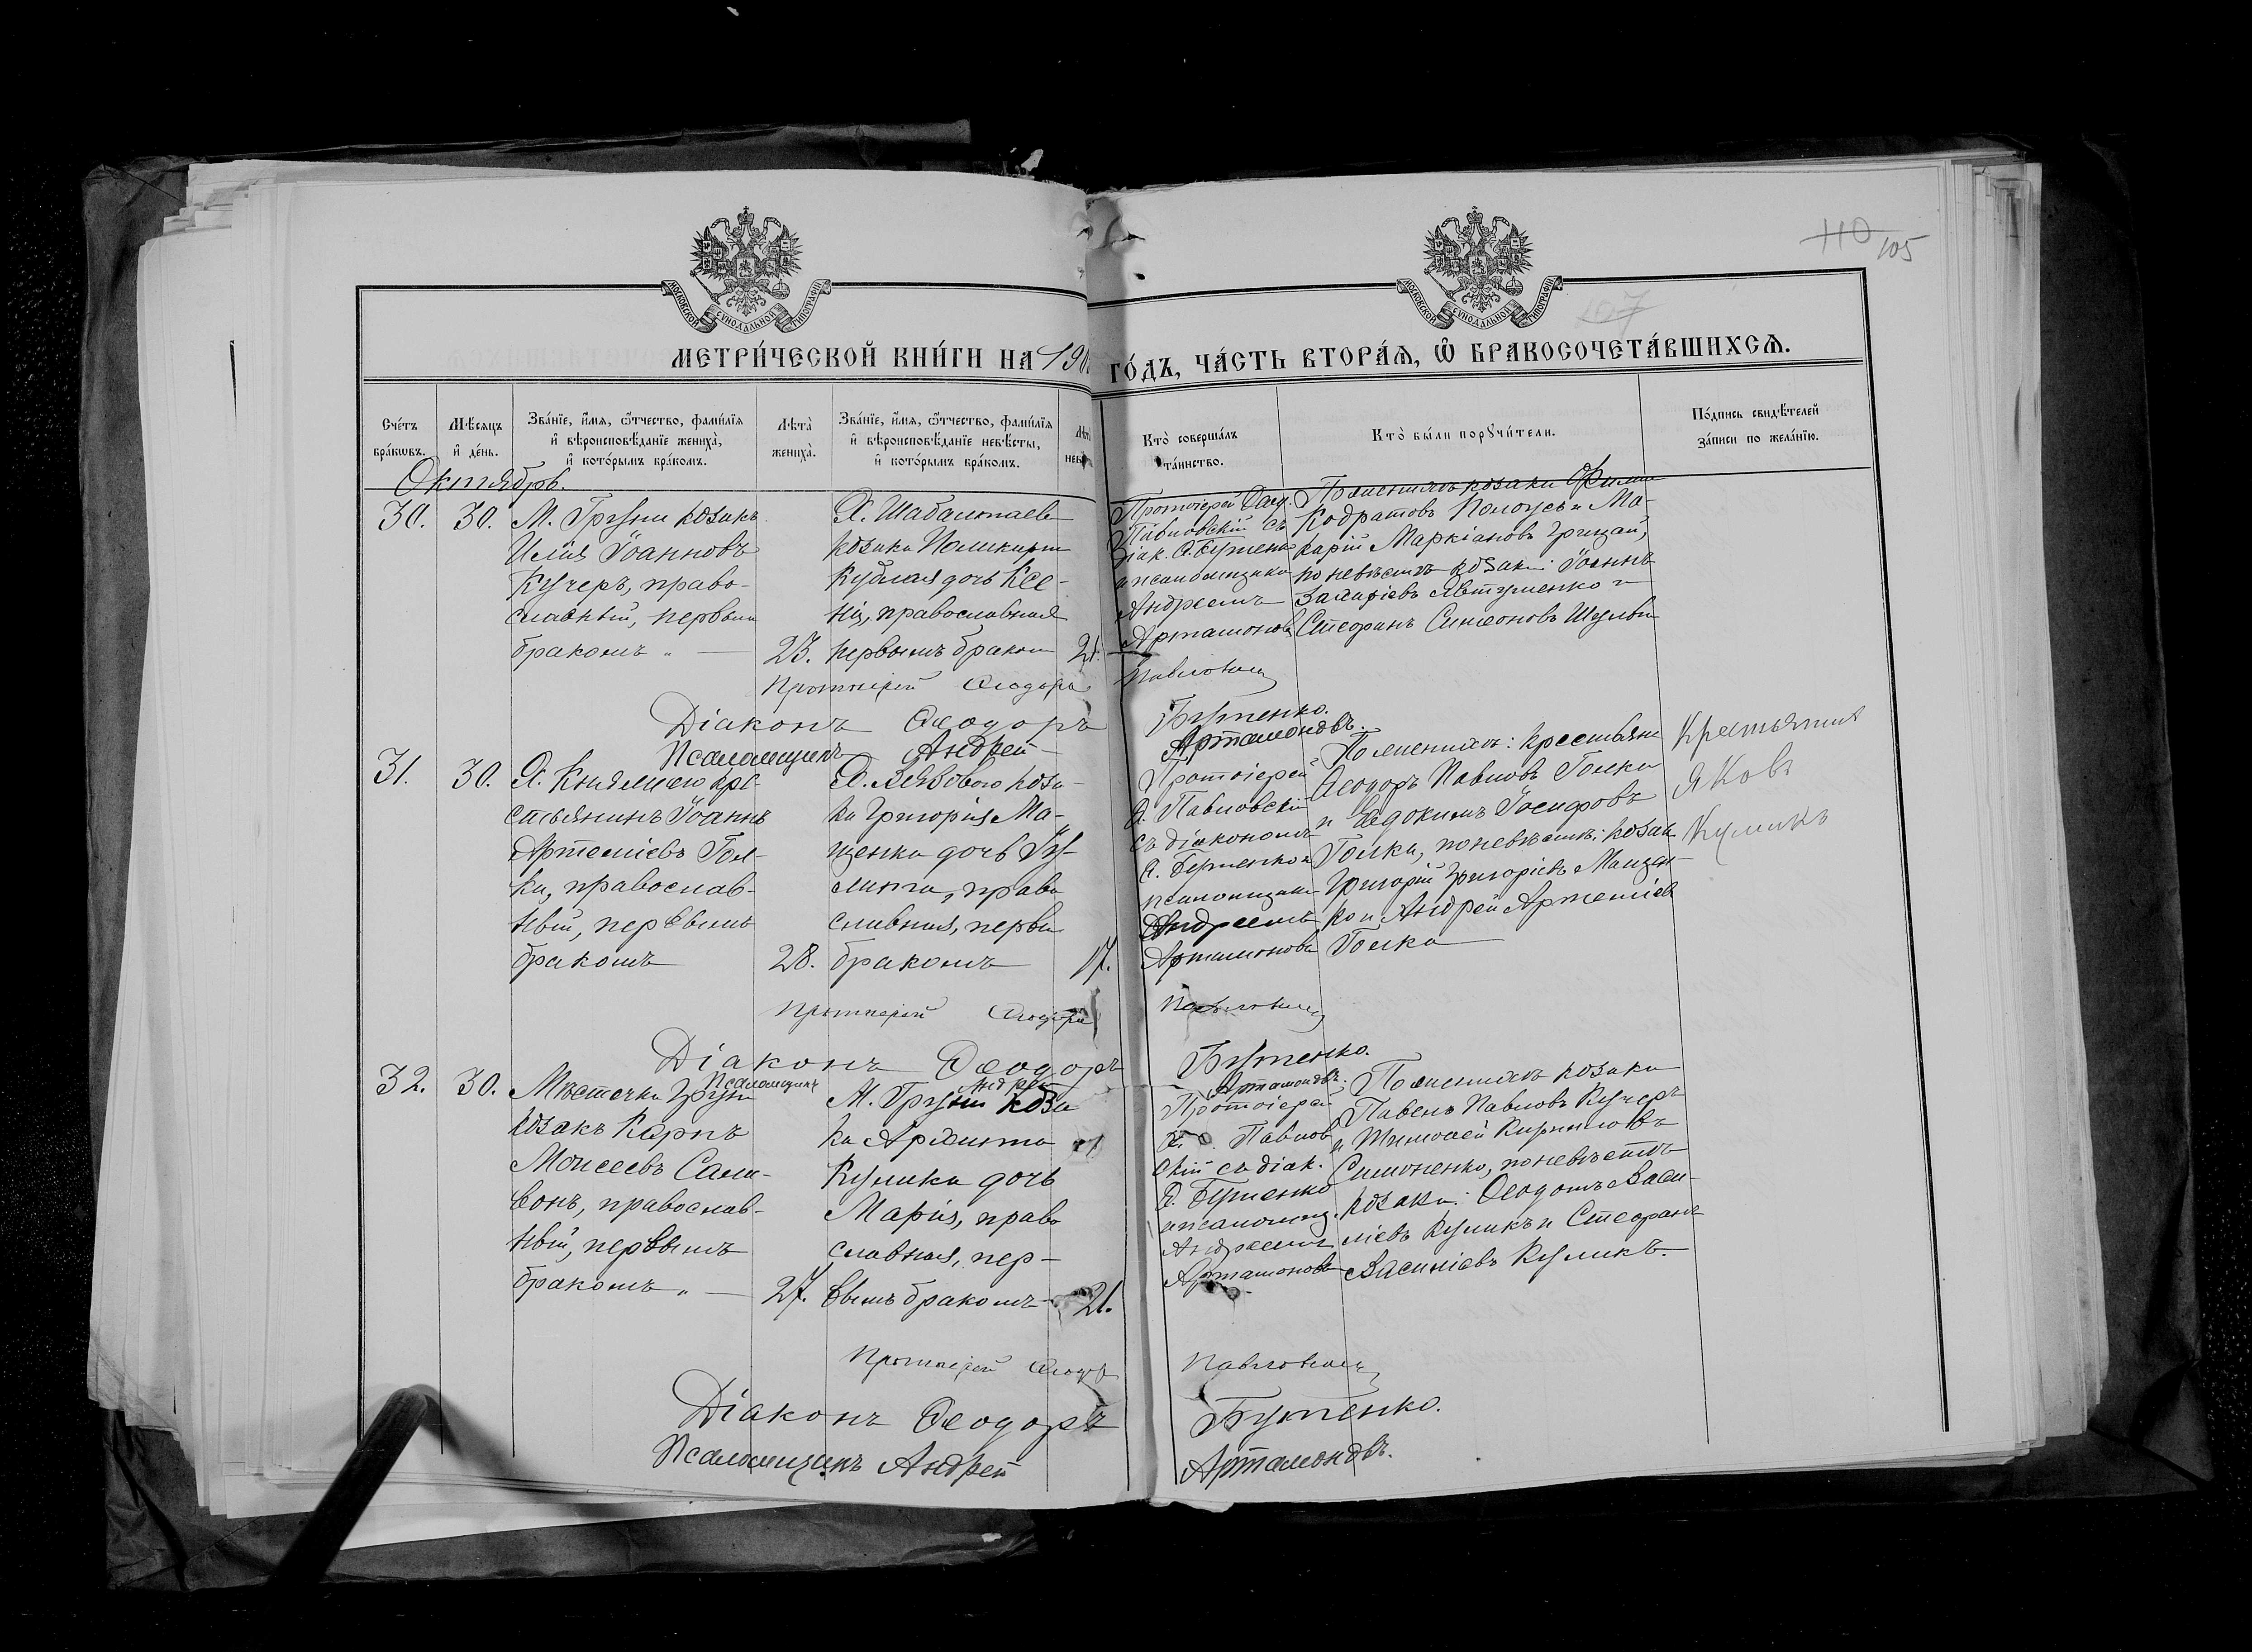 МОСКОВСКОЙ СѴНОДАЛЬНОЙ ТИПОГРАФІИ
МОСКОВСКОЙ СѴНОДАЛЬНОЙ ТИПОГРАФІИ
110 105
107
МЕТРИ́ЧЕСКОЙ КНИ́ГИ НА 190
ГО́ДЪ, ЧА́СТЬ ВТОРА́Ѧ, Ѡ҆ БРАКОСОЧЕТА́ВШИХСѦ.
Сче́тъ бра́кѡвъ.
Мѣ́сѧцъ и҆ де́нь.
Зва́нїе, и҆́мѧ, ѻ҆́тчество, фами́лїѧ и҆ вѣроисповѣ́данїе жениха̀, и҆ кото́рымъ бра́комъ.
Лѣ́та̀ жениха̀.
Зва́нїе, и҆́мѧ, ѻ҆́тчество, фами́лїѧ и҆ вѣроисповѣ́данїе невѣ́сты, и҆ кото́рымъ бра́комъ.
Кто̀ соверша́лъ та́инство.
Кто̀ бы́ли порꙋчи́тели.
По́дпись свидѣ́телей за́писи по жела́нїю.
Октябрь.
30. 30.
М. Груни козакъ
Илія Іоанновъ
Кучеръ, право-
славный, первым
бракомъ „ — 23.
козака
дочь Ксе-
нія, православная
первымъ браком 21.
Протоіерей Ѳеод.
Павловскій съ
діак. Ѳ. Бутенко
и псаломщикомъ
Андреемъ
Артамонов
По женихѣ козаки
Кодратовъ и Ма-
карій Маркіановъ Грицай,
по невѣстѣ козаки: Іоаннъ
и
Стефанъ Симеоновъ
Протоіерей Ѳеодоръ Павловскій
Діаконъ Ѳеодоръ Бутенко.
Псаломщикъ Андрей Артамоновъ.
31. 30.
кре-
стьянинъ Іоаннъ
Артеміевъ Гол-
ка, православ-
ный, первымъ
бракомъ 28.
коза-
ка Григорія Ма-
щенка дочь
право
славная, первы
бракомъ 17.
Протоіерей
Ѳ. Павловскій
съ діакономъ
Ѳ. Бутенко и
псаломщик
Андреемъ
Артамонов
По женихѣ: крестьяне
Ѳеодоръ Павловъ Голка
и Евдокимъ Іосифовъ
Голка, по невѣстѣ: козак
Григорій Григоріевъ Мащен-
ко и Андрей Артеміев
Голка
Крестьянин
Яковъ
Куликъ
Протоіерей Ѳеодоръ Павловскій
Діаконъ Ѳеодоръ Бутенко.
Псаломщикъ Андрей Артамоновъ.
32. 30.
Мѣстечка Груни
козакъ Карпъ
Моисеевъ Сали-
вонъ, православ-
ный, первымъ
бракомъ „ — 27.
М. Груни коза
ка
Кулика дочь
Марія, право
славная, пер-
вымъ бракомъ — 21.
Протоіерей
Ѳ. Павлов
скій съ діак.
Ѳ. Бутенко
и псаломщ.
Андреемъ
Артамонов
По женихѣ козаки
Павелъ Павловъ Кучеръ
и Тимоѳей Кирилловъ
Симоненко, по невѣстѣ
козаки: Ѳеодотъ Васи-
ліевъ Куликъ и Стефанъ
Василіевъ Куликъ.
Протоіерей Ѳеодоръ Павловскій
Діаконъ Ѳеодоръ Бутенко.
Псаломщикъ Андрей Артамоновъ.